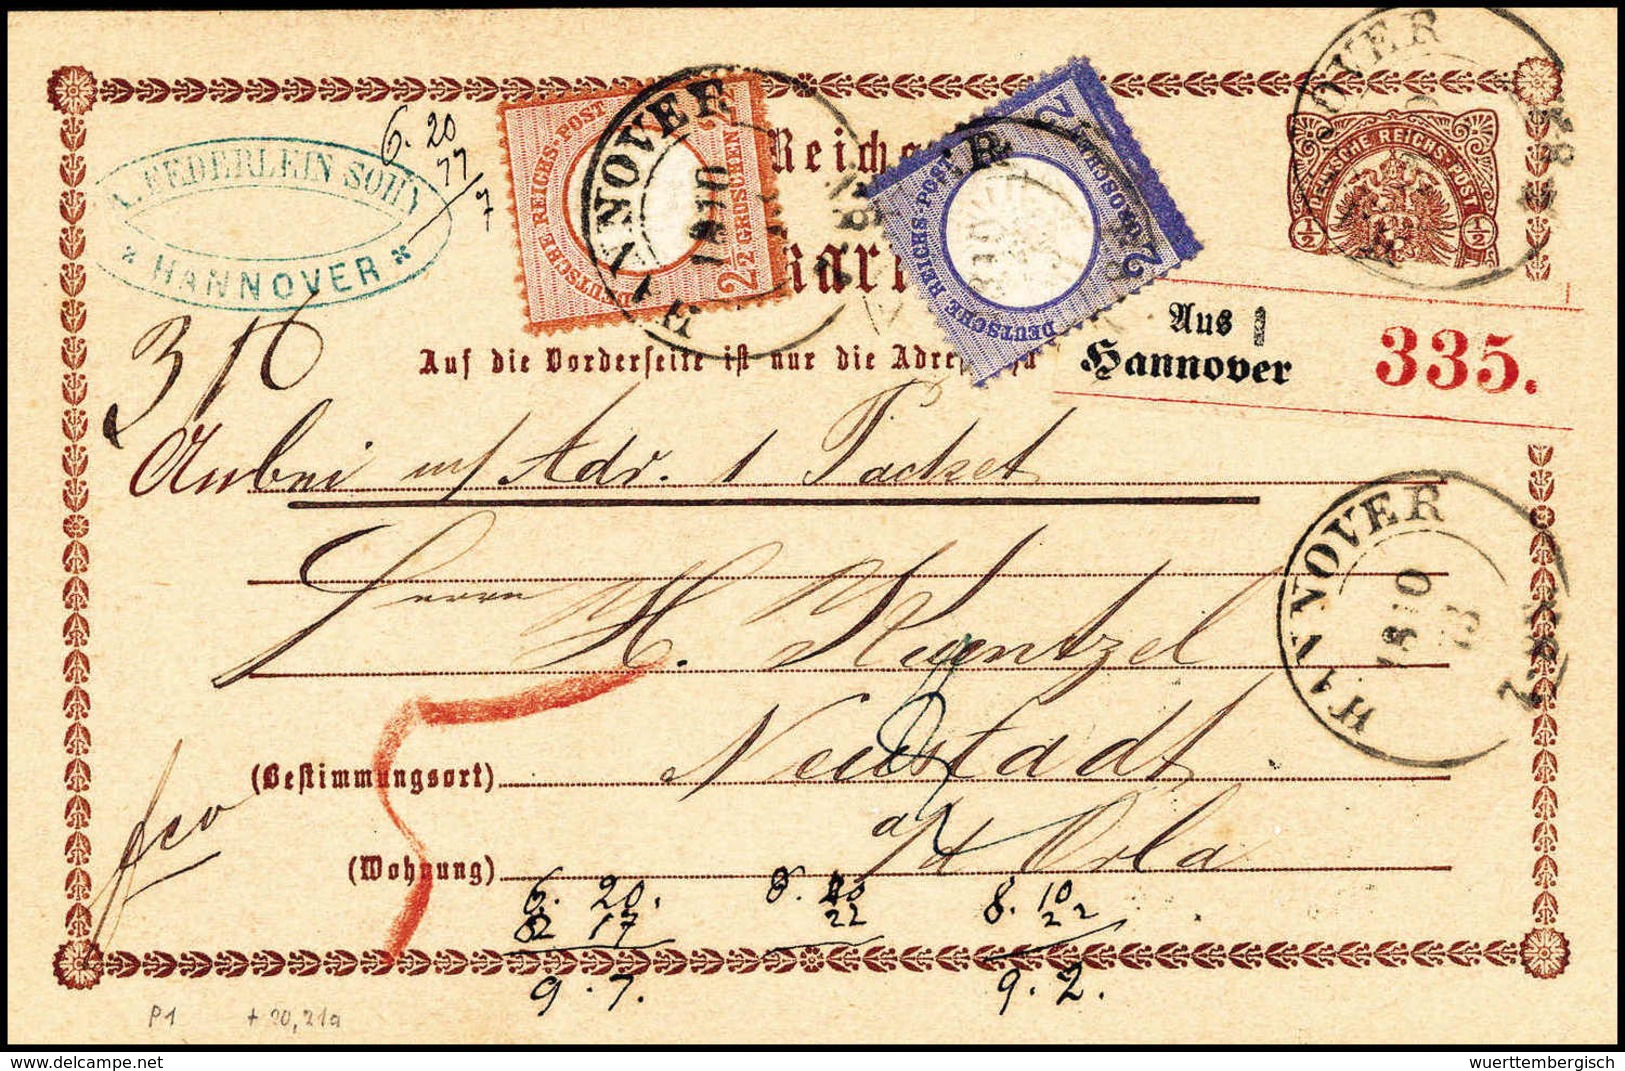 A. FEDERLEIN SOHN
* HANNOVER *
6. 20
17
7
DEUTSCHE REICHS-POST
2½ 2½ GROSCHEN
HANNOVER
18 10
Reichs
2 GROSCHEN 2
DEUTSCHE REICHS-POST
HANNOVER
DEUTSCHE REICHS-POST
½ ½
karte
Aus 1
Hannover
335.
Auf die Vorderseite ist nur die Adresse zu
Anbei m/ Adr. 1 Packet
Herrn H. Kuntzel
HANNOVER
18 10
73
(Bestimmungsort) Neustadt
fco
5
a/d Orla
(Wohnung)
6. 20. 8. 10 8. 10
82 17 22 22
9. 7. 9. 2.
P1 + 20, 21a
delcampe.net
wuerttembergisch